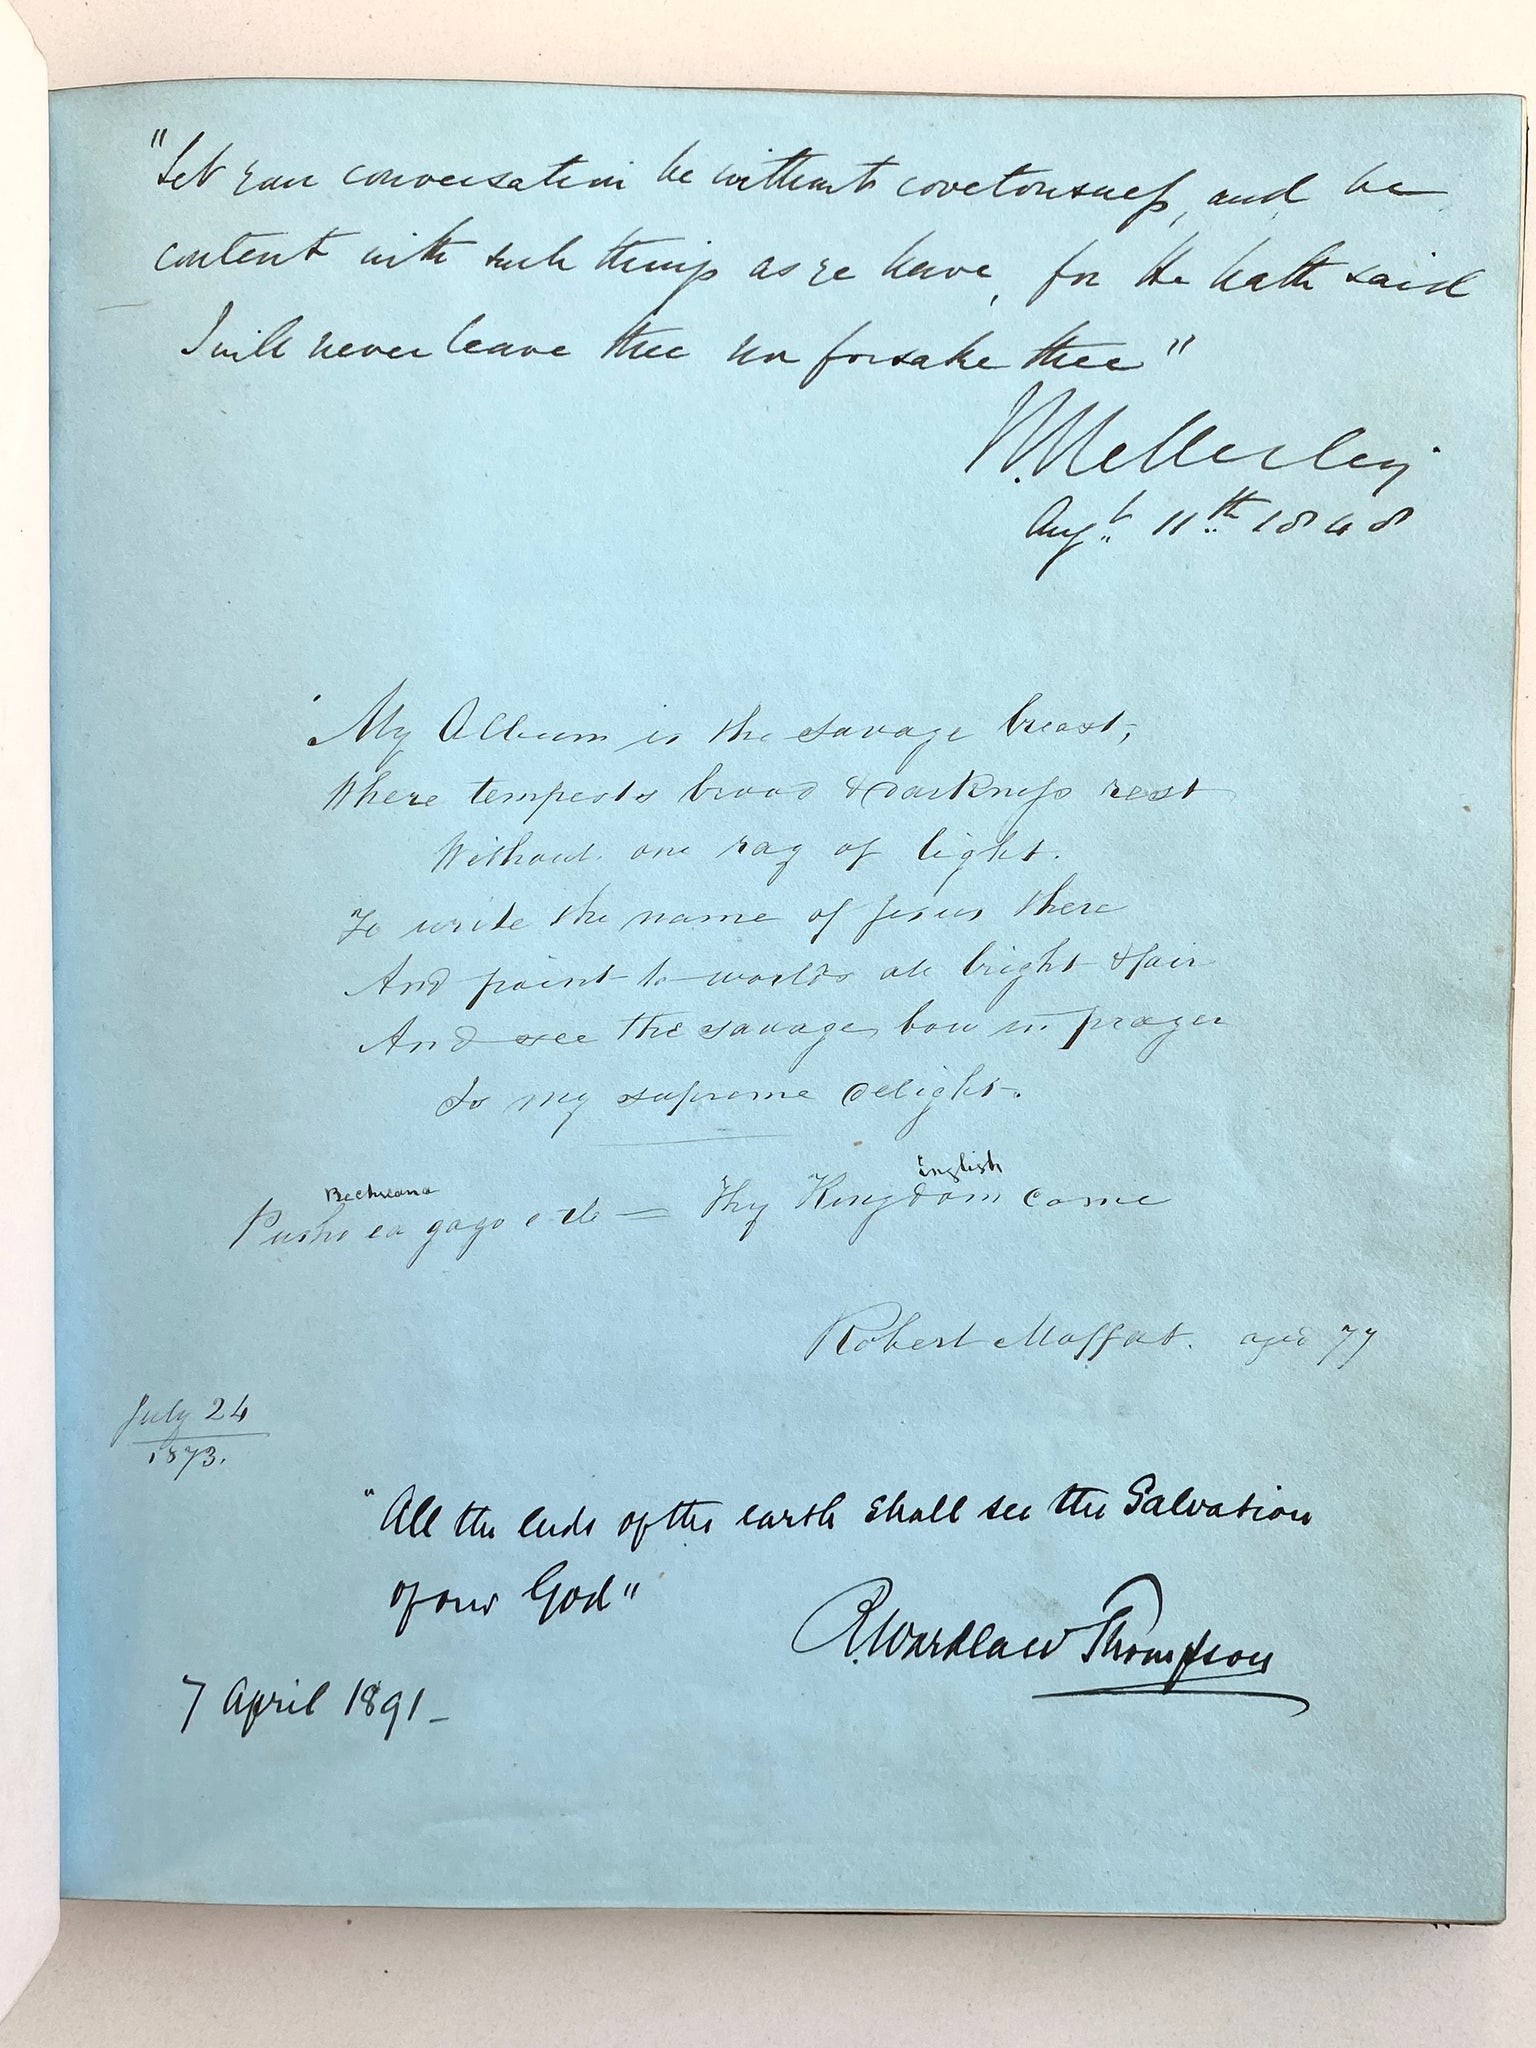 "Let your conversation be without covetousness, and be
content with such things as ye have, for He hath said
I will never leave thee nor forsake thee"
Augt 11th 1848
"My Album is the savage breast,
Where tempests brood & darkness rest
Without one ray of light.
To write the name of Jesus there
And point to worlds all bright & fair
And see the savage bow in prayer
Is my supreme delight.
Bechuana English
gago e tle = Thy Kingdom come
Robert Moffat. aged 77
July 24
1873.
"All the Ends of the earth shall see the Salvation
of our God"
R. Wardlaw Thompson
7 April 1891_